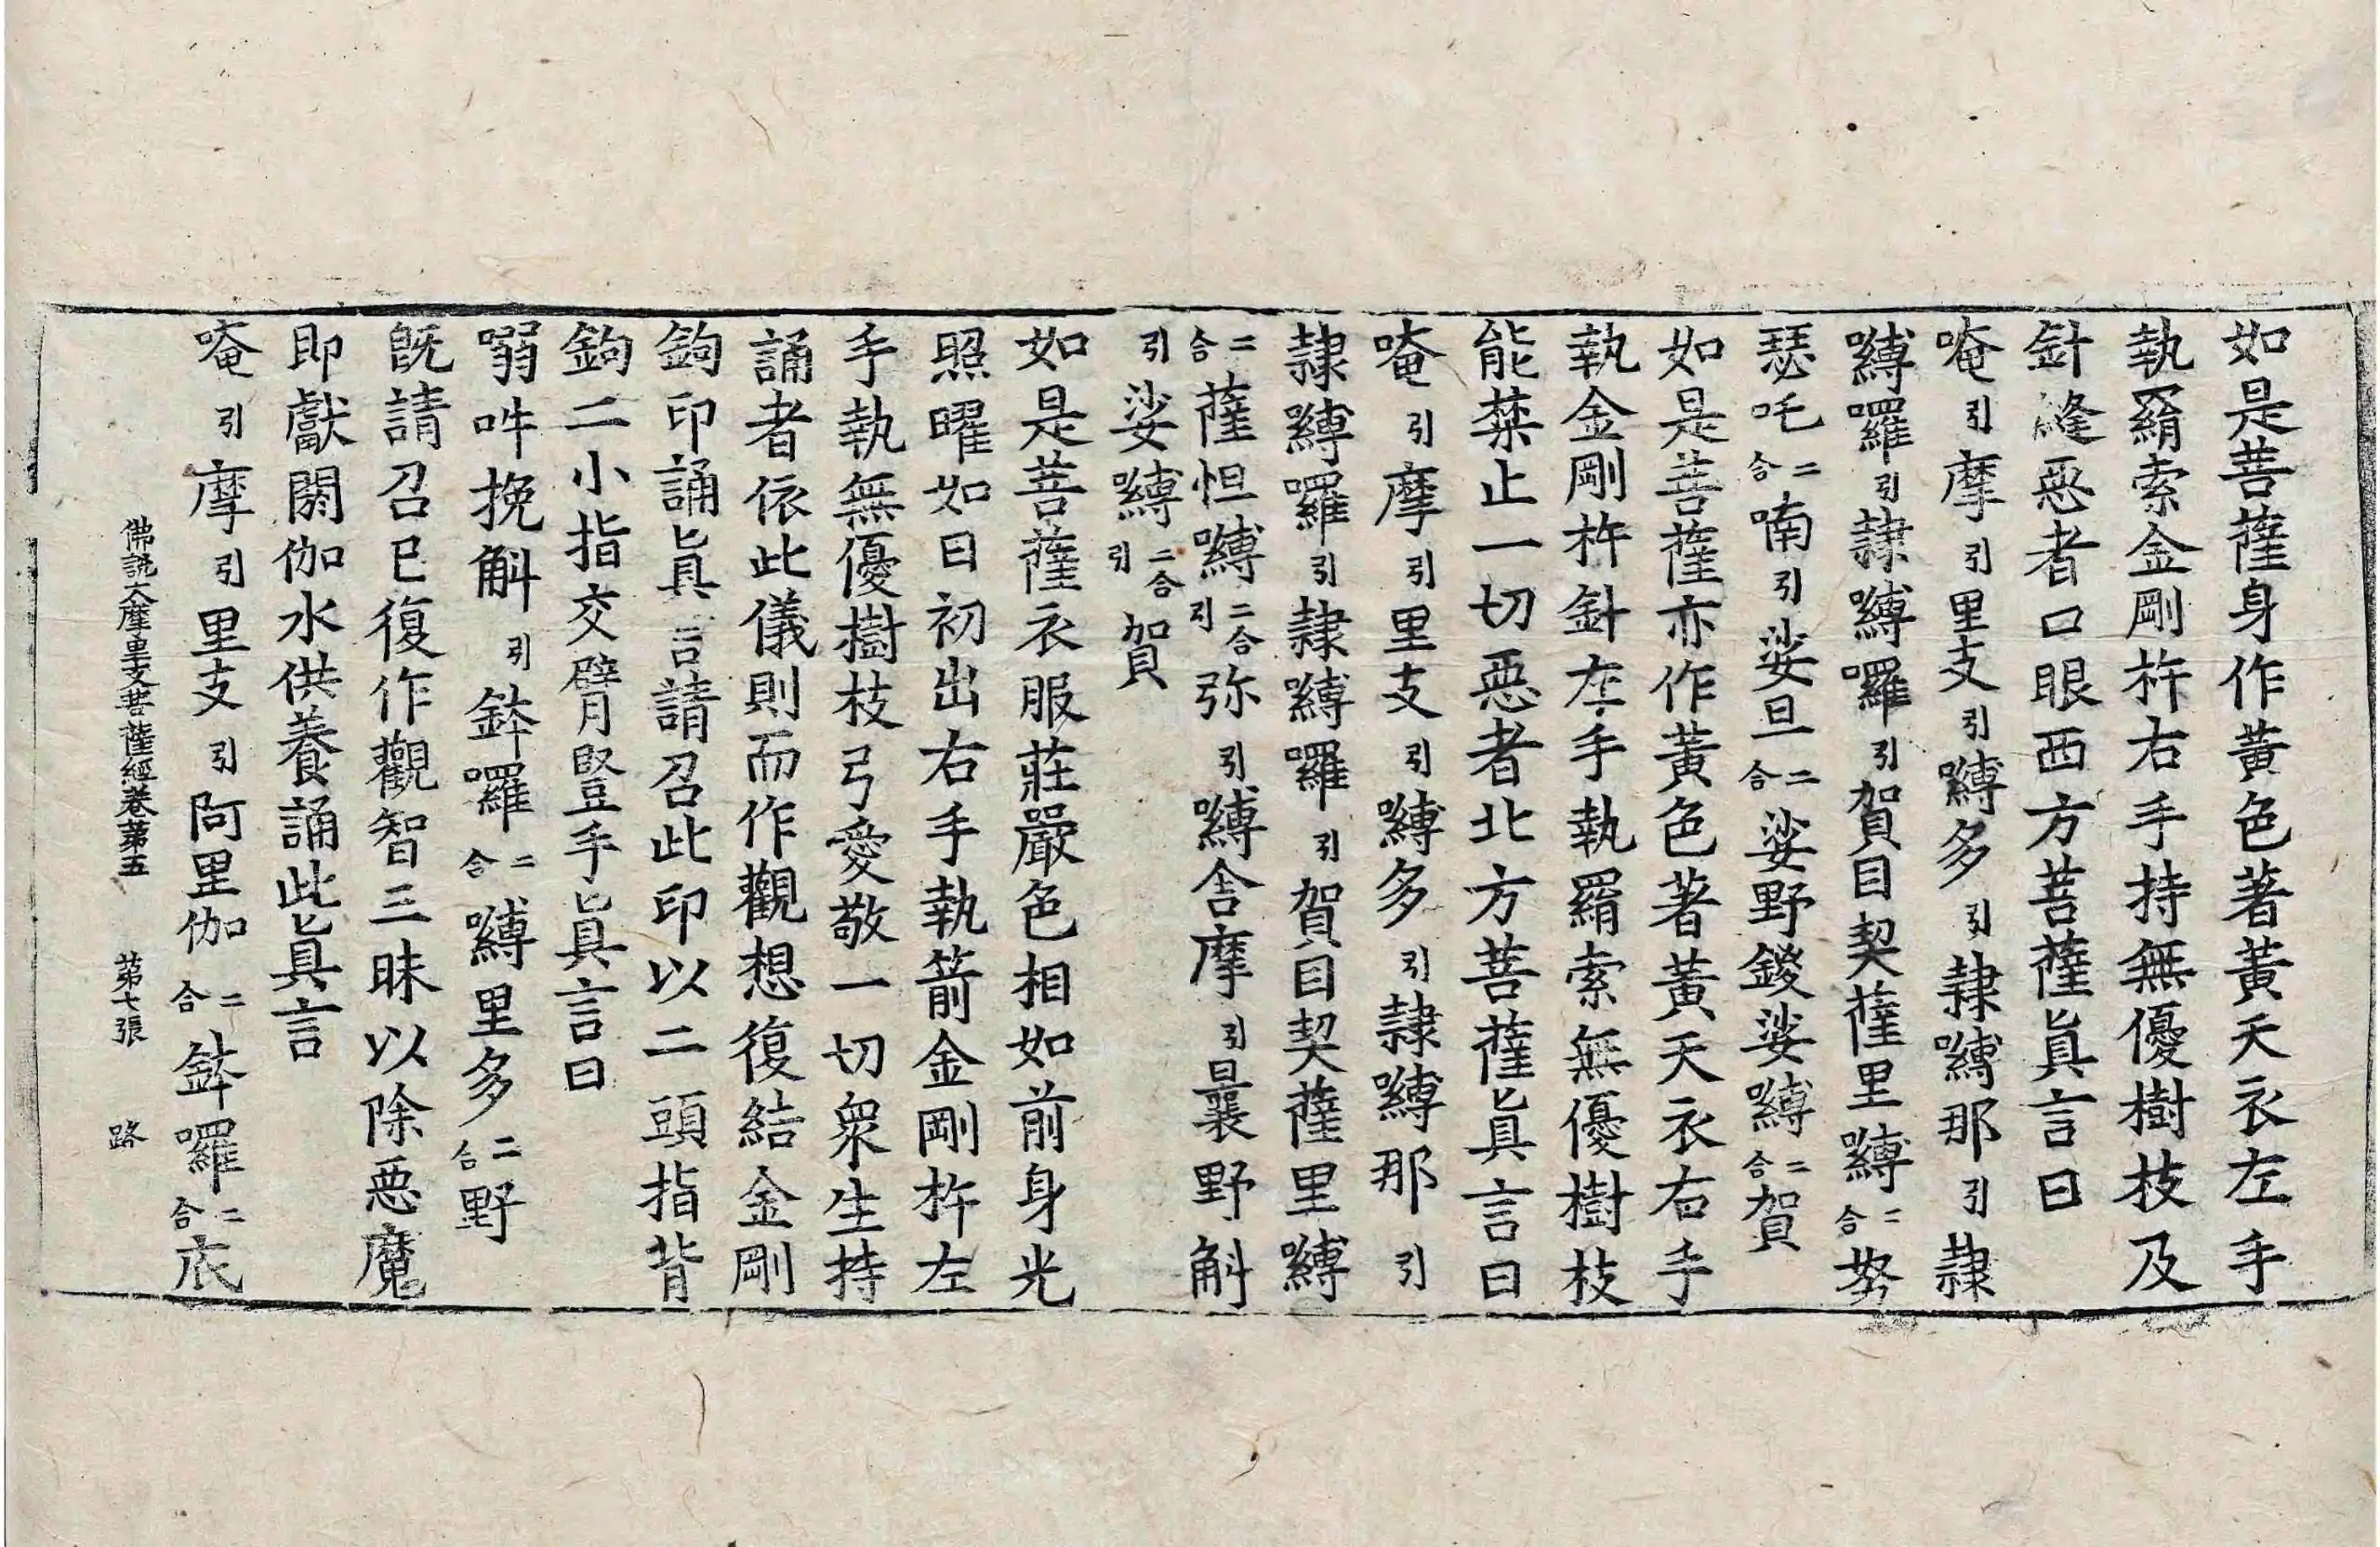 如是菩薩身作黃色著黃天衣左手
執羂索金剛杵右手持無優樹枝及
針縫惡者口眼西方菩薩眞言曰
唵引摩引里支引嚩多引隷嚩那引隷
嚩囉引隷嚩囉引賀目契薩里嚩二合努
瑟吒二合喃引娑旦二合娑野鍐娑嚩二合賀
如是菩薩亦作黃色著黃天衣右手
執金剛杵針左手執羂索無優樹枝
能禁止一切惡者北方菩薩眞言曰
唵引摩引里支引嚩多引隷嚩那引
隷嚩囉引隷嚩囉引賀目契薩里嚩
二合薩怛嚩二合引弥引嚩舍摩引曩野斛
引娑嚩二合引賀
如是菩薩衣服莊嚴色相如前身光
照曜如日初出右手執箭金剛杵左
手執無優樹枝弓愛敬一切衆生持
誦者依此儀則而作觀想復結金剛
鉤印誦眞言請召此印以二頭指背
鉤二小指交臂豎手眞言曰
嗢吽挽斛引鉢囉二合嚩里多二合野
旣請召已復作觀智三昧以除惡魔
卽獻閼伽水供養誦此眞言
唵引摩引里支引阿里伽二合鉢囉二合底
佛說大摩里支菩薩經卷第五　第七張　路